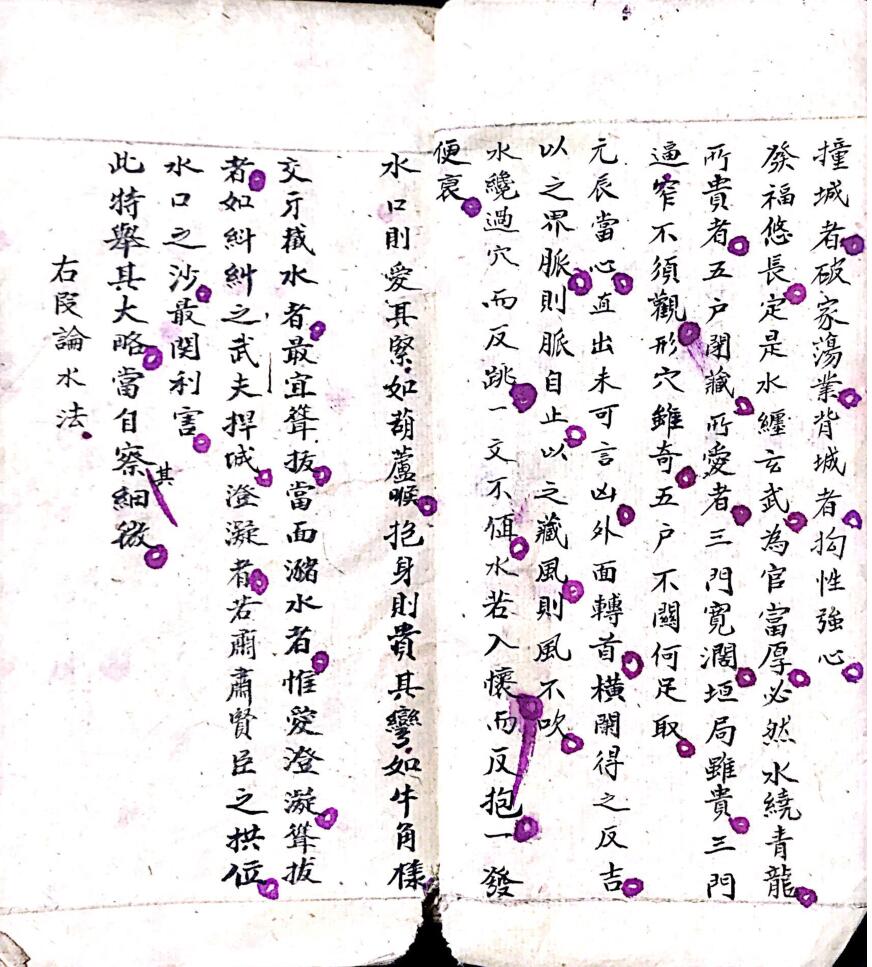 撞城者破家蕩業背城者拘性強心
發福悠長定是水纏玄武為官富厚必然水繞青龍
所貴者五户閉藏所愛者三門寬濶垣局雖貴三門
逼窄不須觀形穴雖奇五户不關何足取
元辰當心直出未可言凶外面轉首橫闌得之反吉
以之界脈則脈自止以之藏風則風不吹
水纔過穴而反跳一文不値水若入懷而反抱一發
便衰
水口則愛其緊如葫蘆喉抱身則貴其彎如牛角様
交牙截水者最宜聳拔當面瀦水者惟愛澄凝聳拔
者如糾糾之武夫捍城澄凝者若肅肅賢臣之拱位
水口之沙最関利害
此特舉其大略當自察其細微
右段論水法